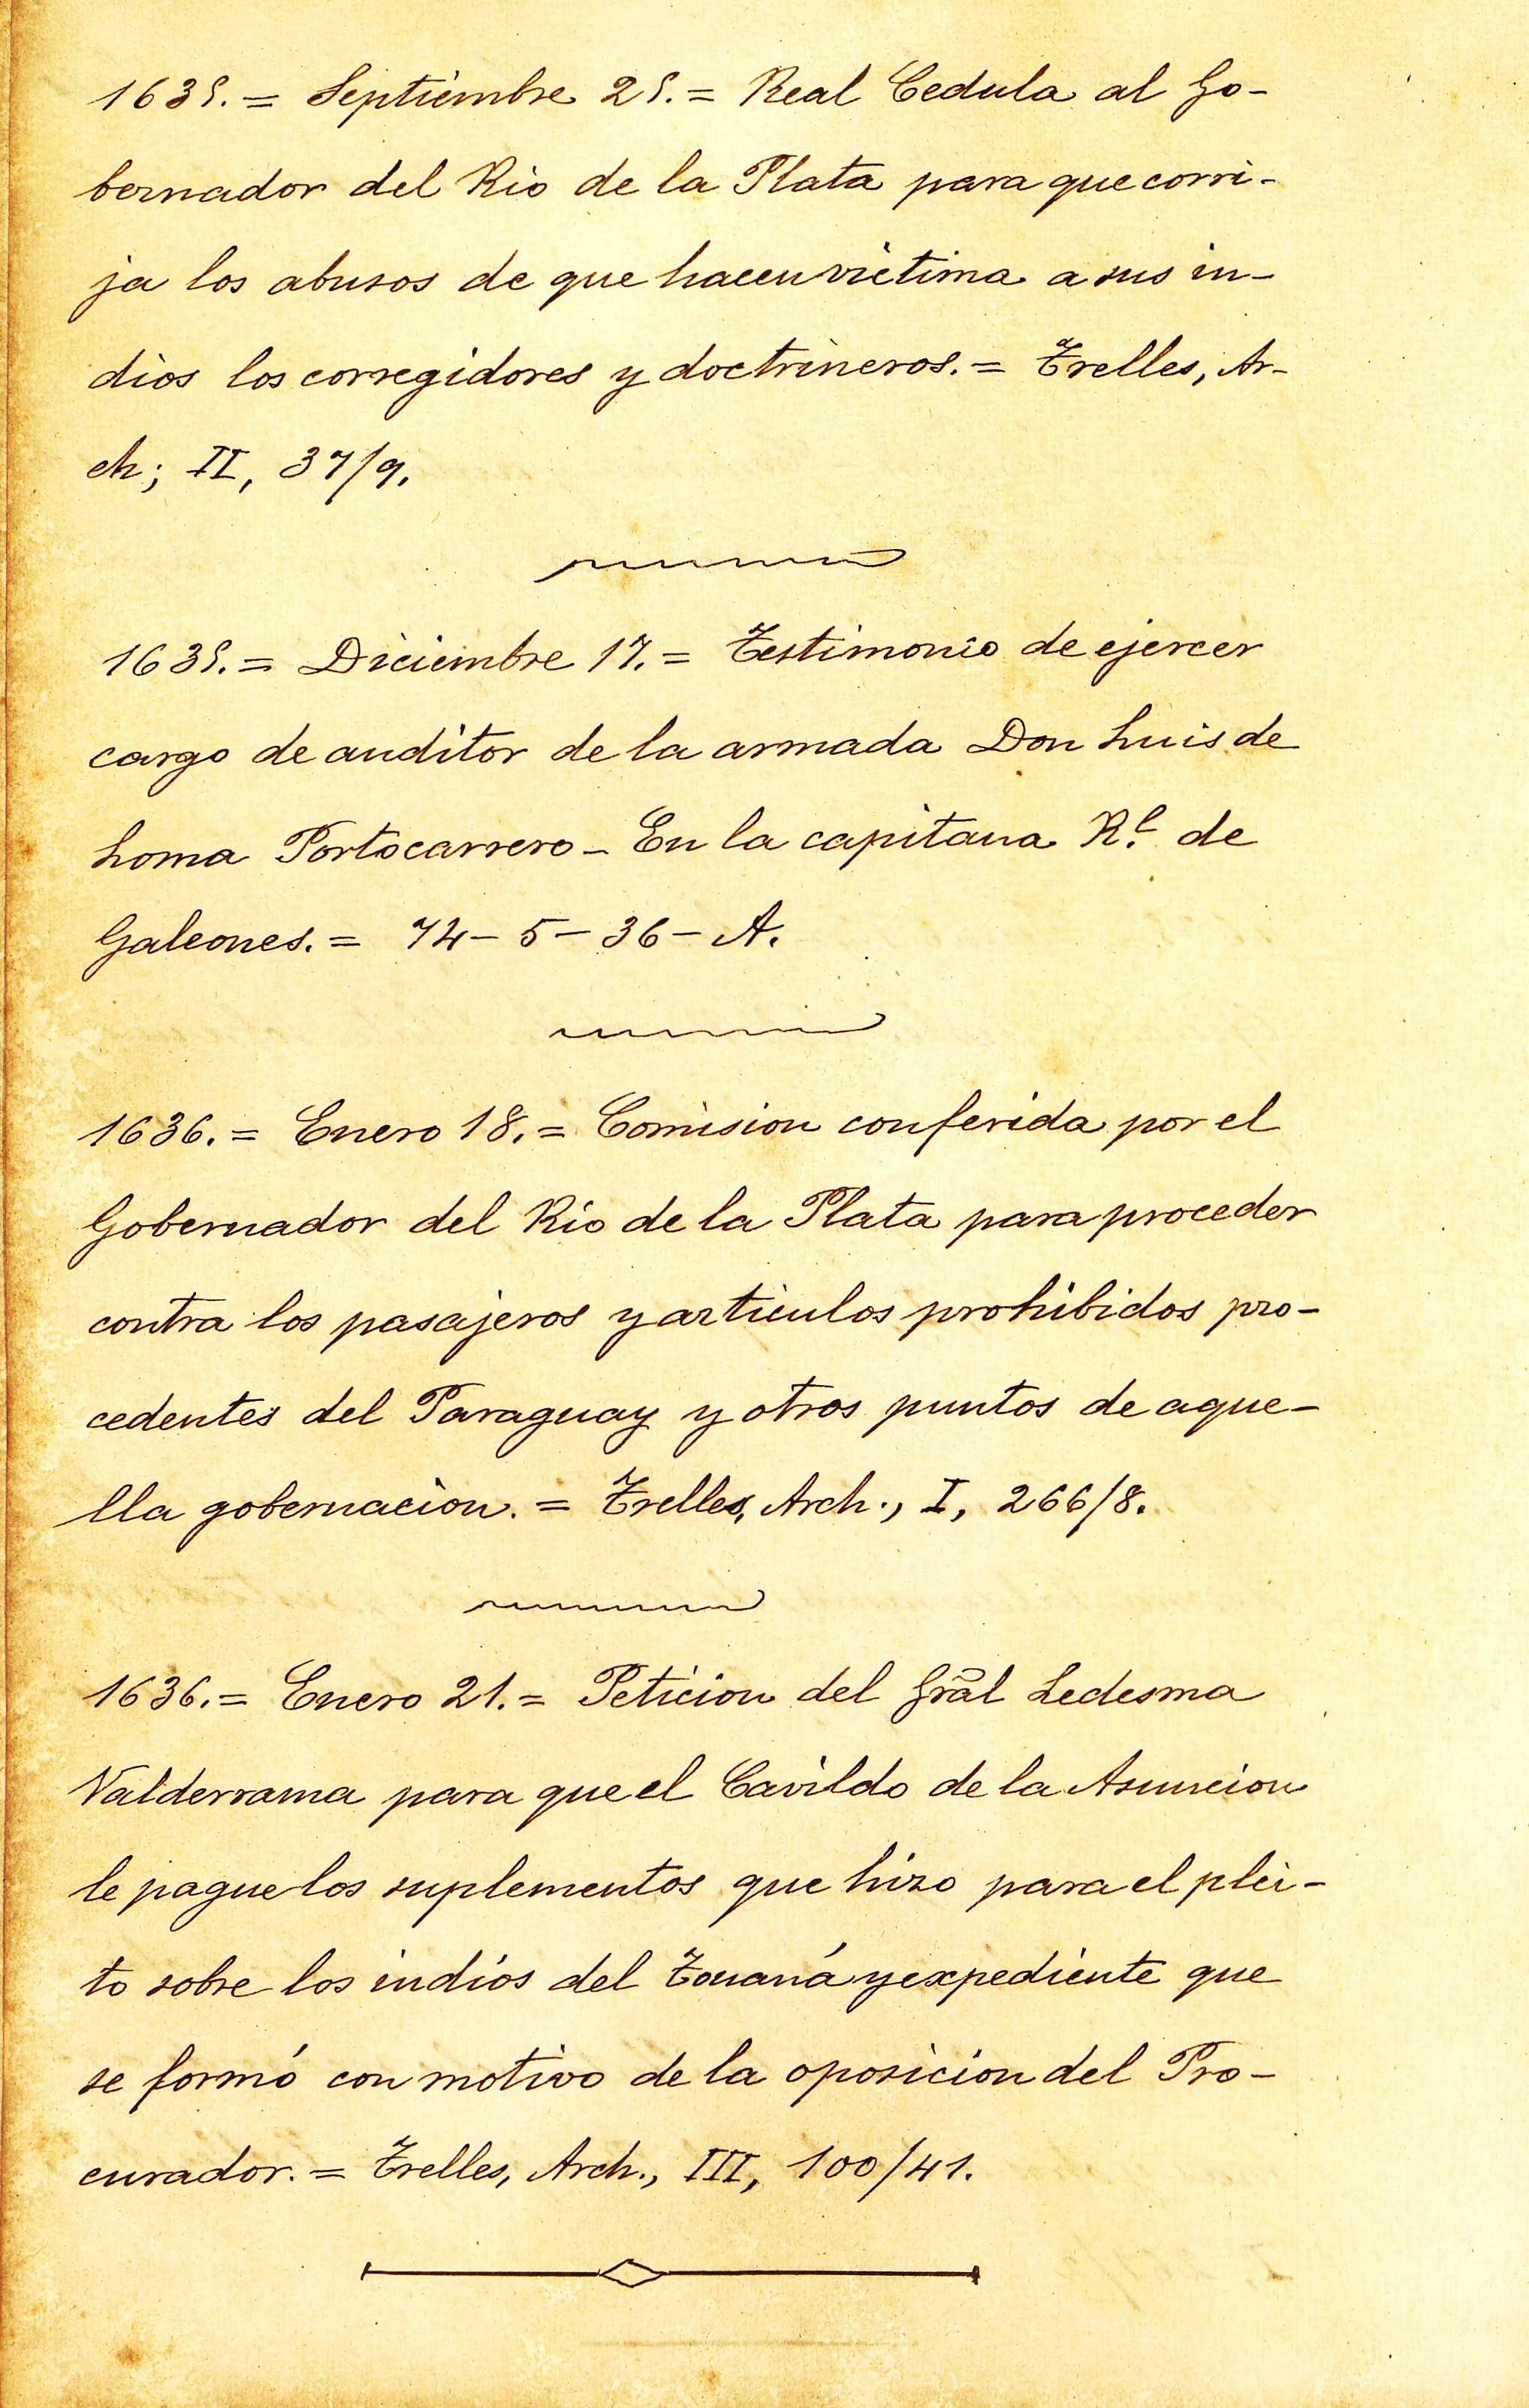 1635. = Septiembre 25. = Real Cedula al Go-
bernador del Rio de la Plata para que corri-
ja los abusos de que hacen victima a sus in-
dios los corregidores y doctrineros. = Trelles, Ar-
ch; II, 37/9.
1635. = Diciembre 17. = Testimonio de ejercer
cargo de auditor de la armada Don Luis de
Loma Portocarrero - En la capitana Rl. de
Galeones. = 74 - 5 - 36 - A.
1636. = Enero 18. = Comision conferida por el
Gobernador del Rio de la Plata para proceder
contra los pasajeros y articulos prohibidos pro-
cedentes del Paraguay y otros puntos de aque-
lla gobernacion. = Trelles, Arch., I, 266/8.
1636. = Enero 21. = Peticion del Grāl Ledesma
Valderrama para que el Cavildo de la Asuncion
le pague los suplementos que hizo para el plei-
to sobre los indios del y expediente que
se formó con motivo de la oposicion del Pro-
curador. = Trelles, Arch., III, 100/41.